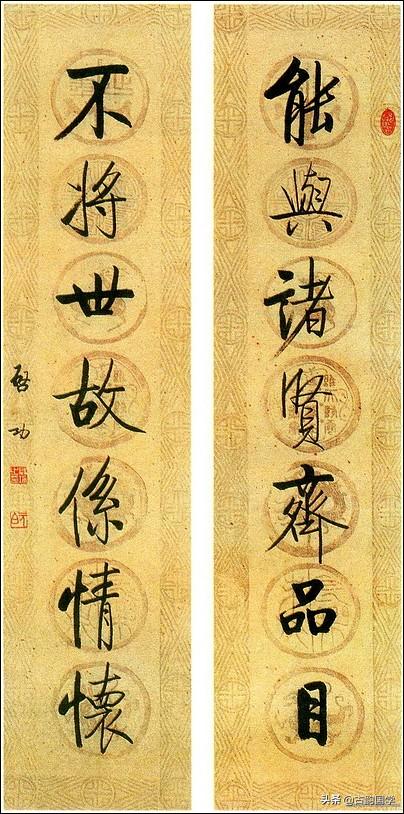 能與諸賢齊品目
不将世故係情懷
啓功
头条 @古韵国学